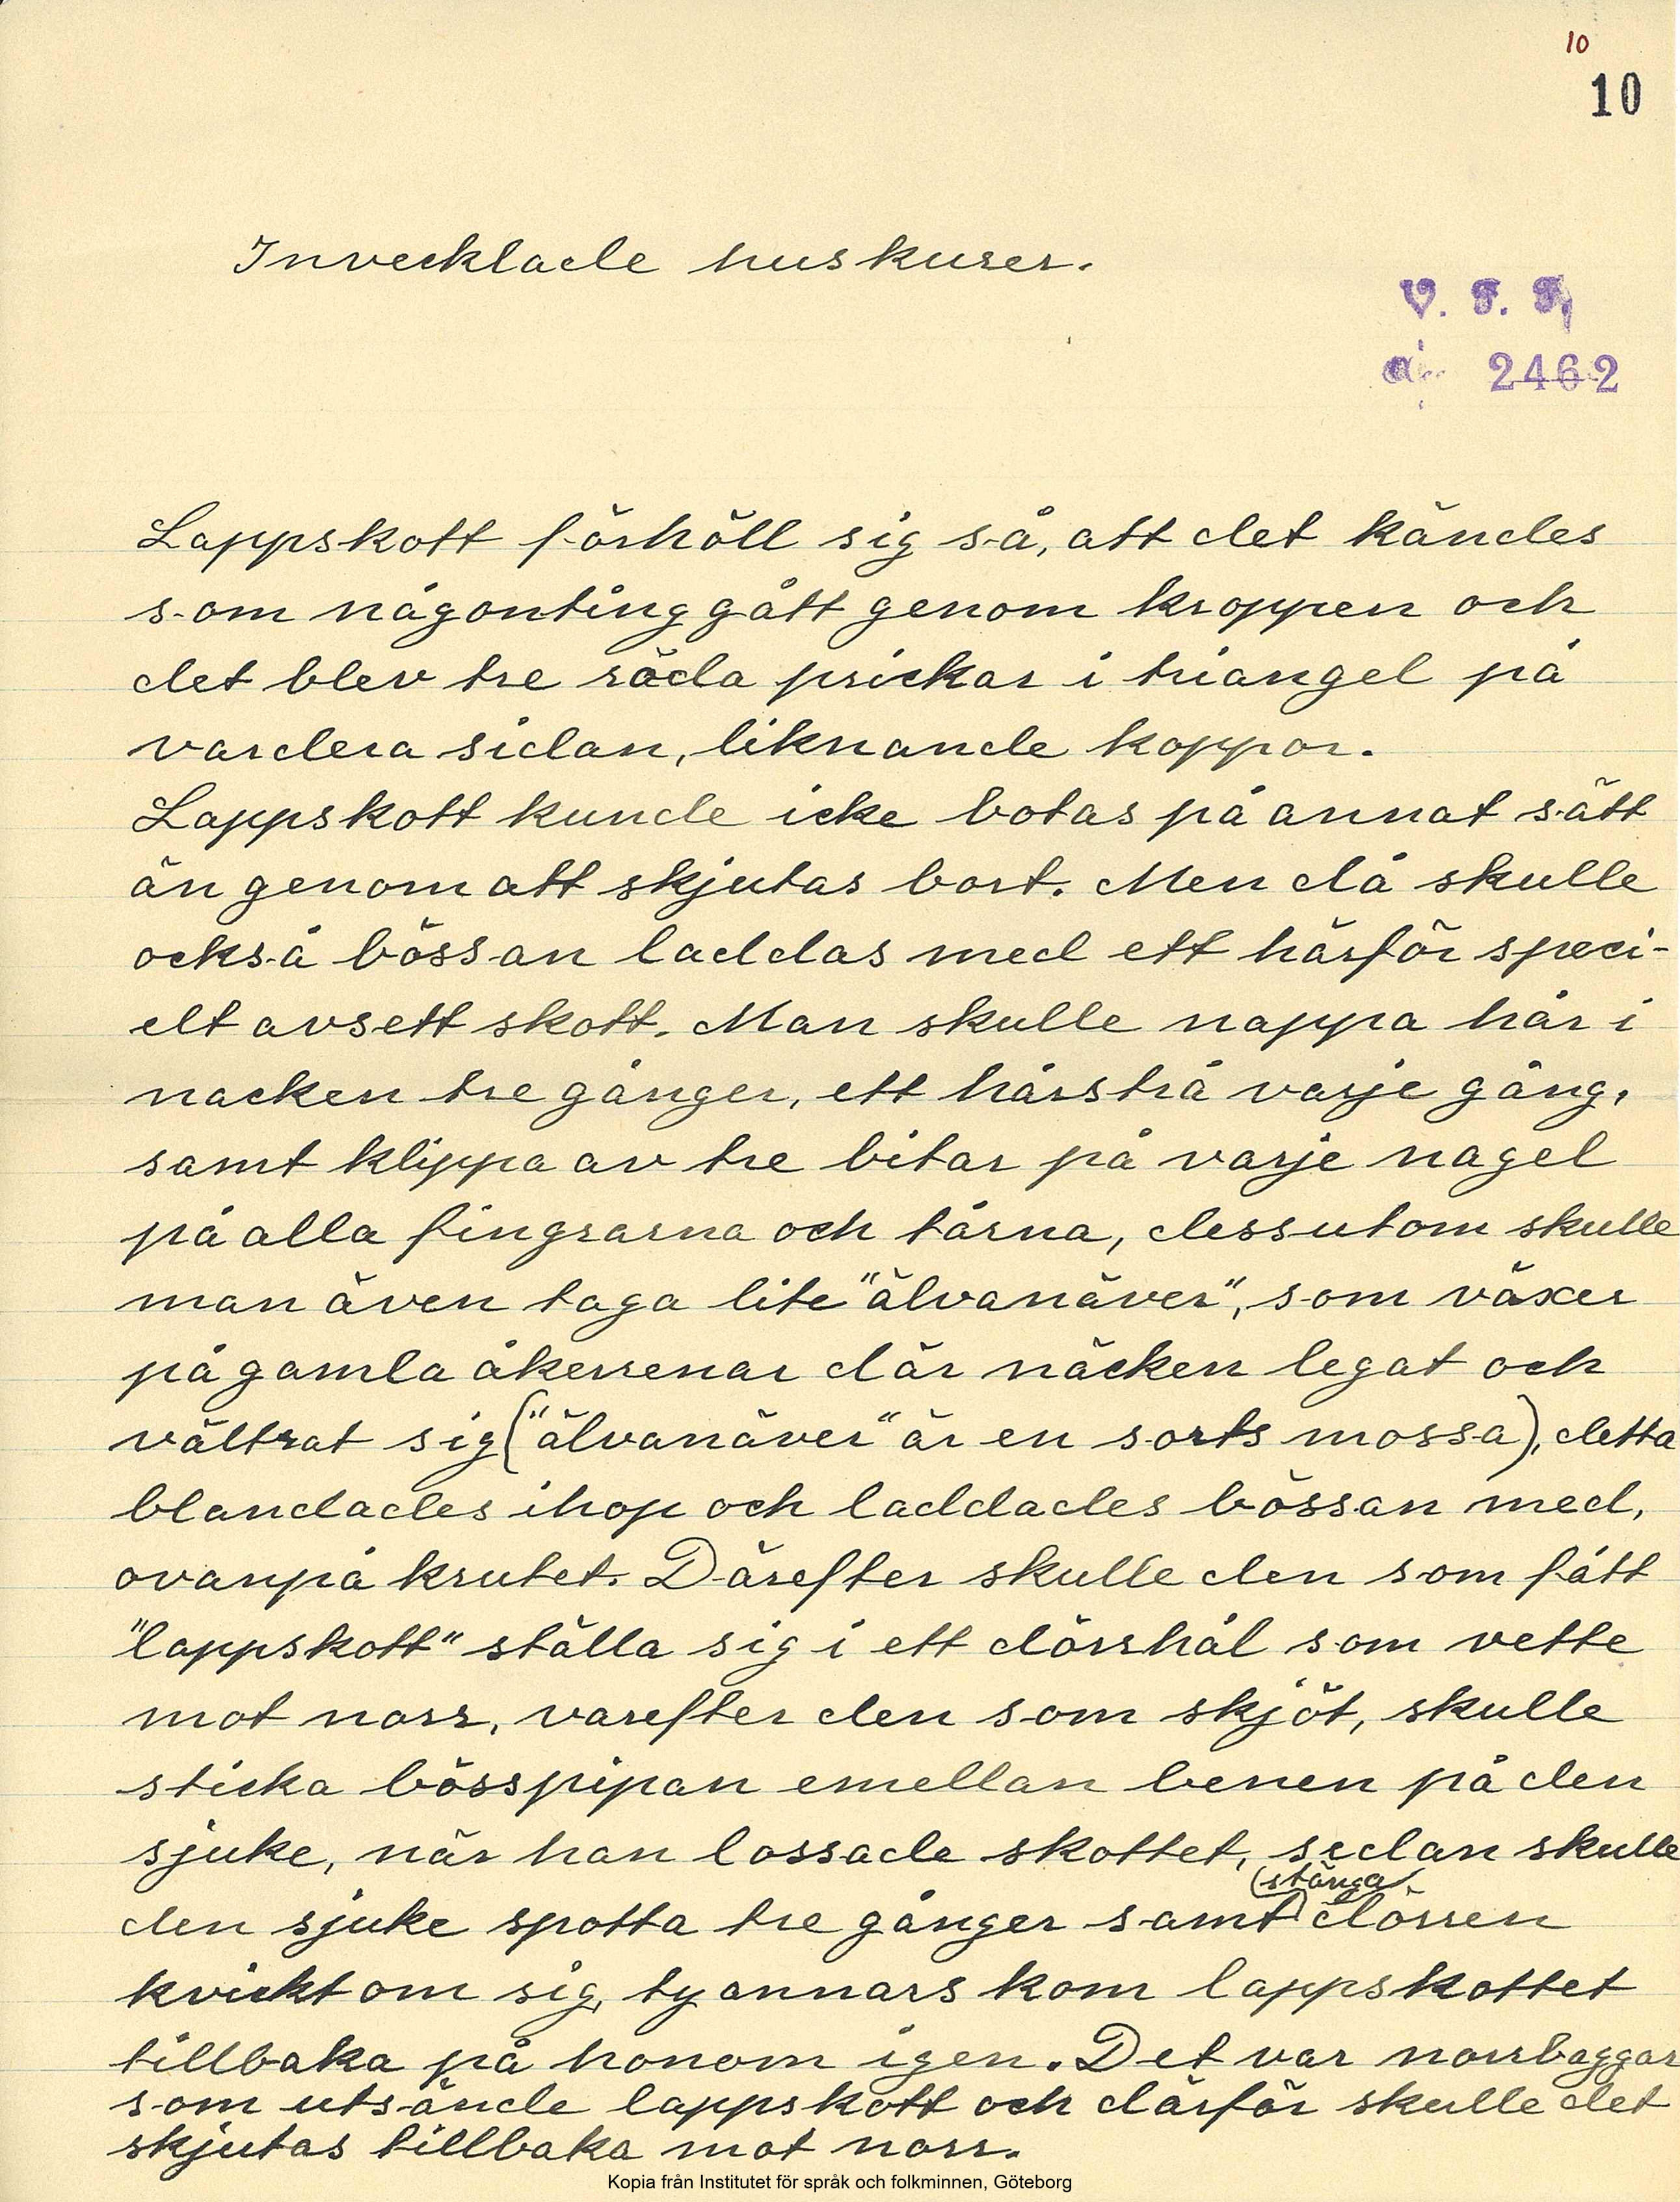 10
10
Invecklade huskurer.
V. F. F.
2462
Lappskott förhöll sig så, att det kändes
som någonting gått genom kroppen och
det blev tre röda prickar i triangel på
vardera sidan, liknande koppor.
Lappskott kunde icke botas på annat sätt
än genom att skjutas bort. Men då skulle
också bössan laddas med ett härför speci-
elt avsett skott. Man skulle nappa hår i
nacken tre gånger, ett hårstrå varje gång,
samt klippa av tre bitar på varje nagel
på alla fingrarna och tårna, dessutom skulle
man även taga lite "älvanäver", som växer
på gamla åkerrenar där näcken legat och
vältrat sig ("älvanäver" är en sorts mossa), detta
blandades ihop och laddades bössan med,
ovanpå krutet. Därefter skulle den som fått
"lappskott" ställa sig i ett dörrhål som vette
mot norr, varefter den som skjöt, skulle
sticka bösspipan emellan benen på den
sjuke, när han lossade skottet, sedan skulle
den sjuke spotta tre gånger samt stänga dörren
kvickt om sig, ty annars kom lappskottet
tillbaka på honom igen. Det var norrbaggar
som utsände lappskott och därför skulle det
skjutas tillbaka mot norr.
Kopia från Institutet för språk och folkminnen, Göteborg